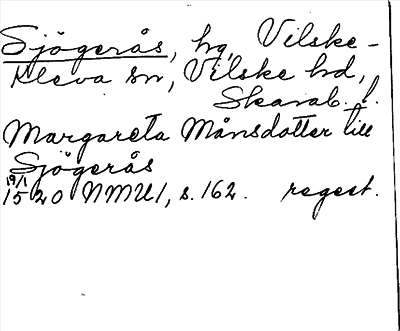 Sjögerås, hg, Vilske-
Kleva sn, Vilske hd,
Skarab. l.
Margareta Månsdotter till
Sjögerås
19/1
1520 NMU 1, s. 162. regest.